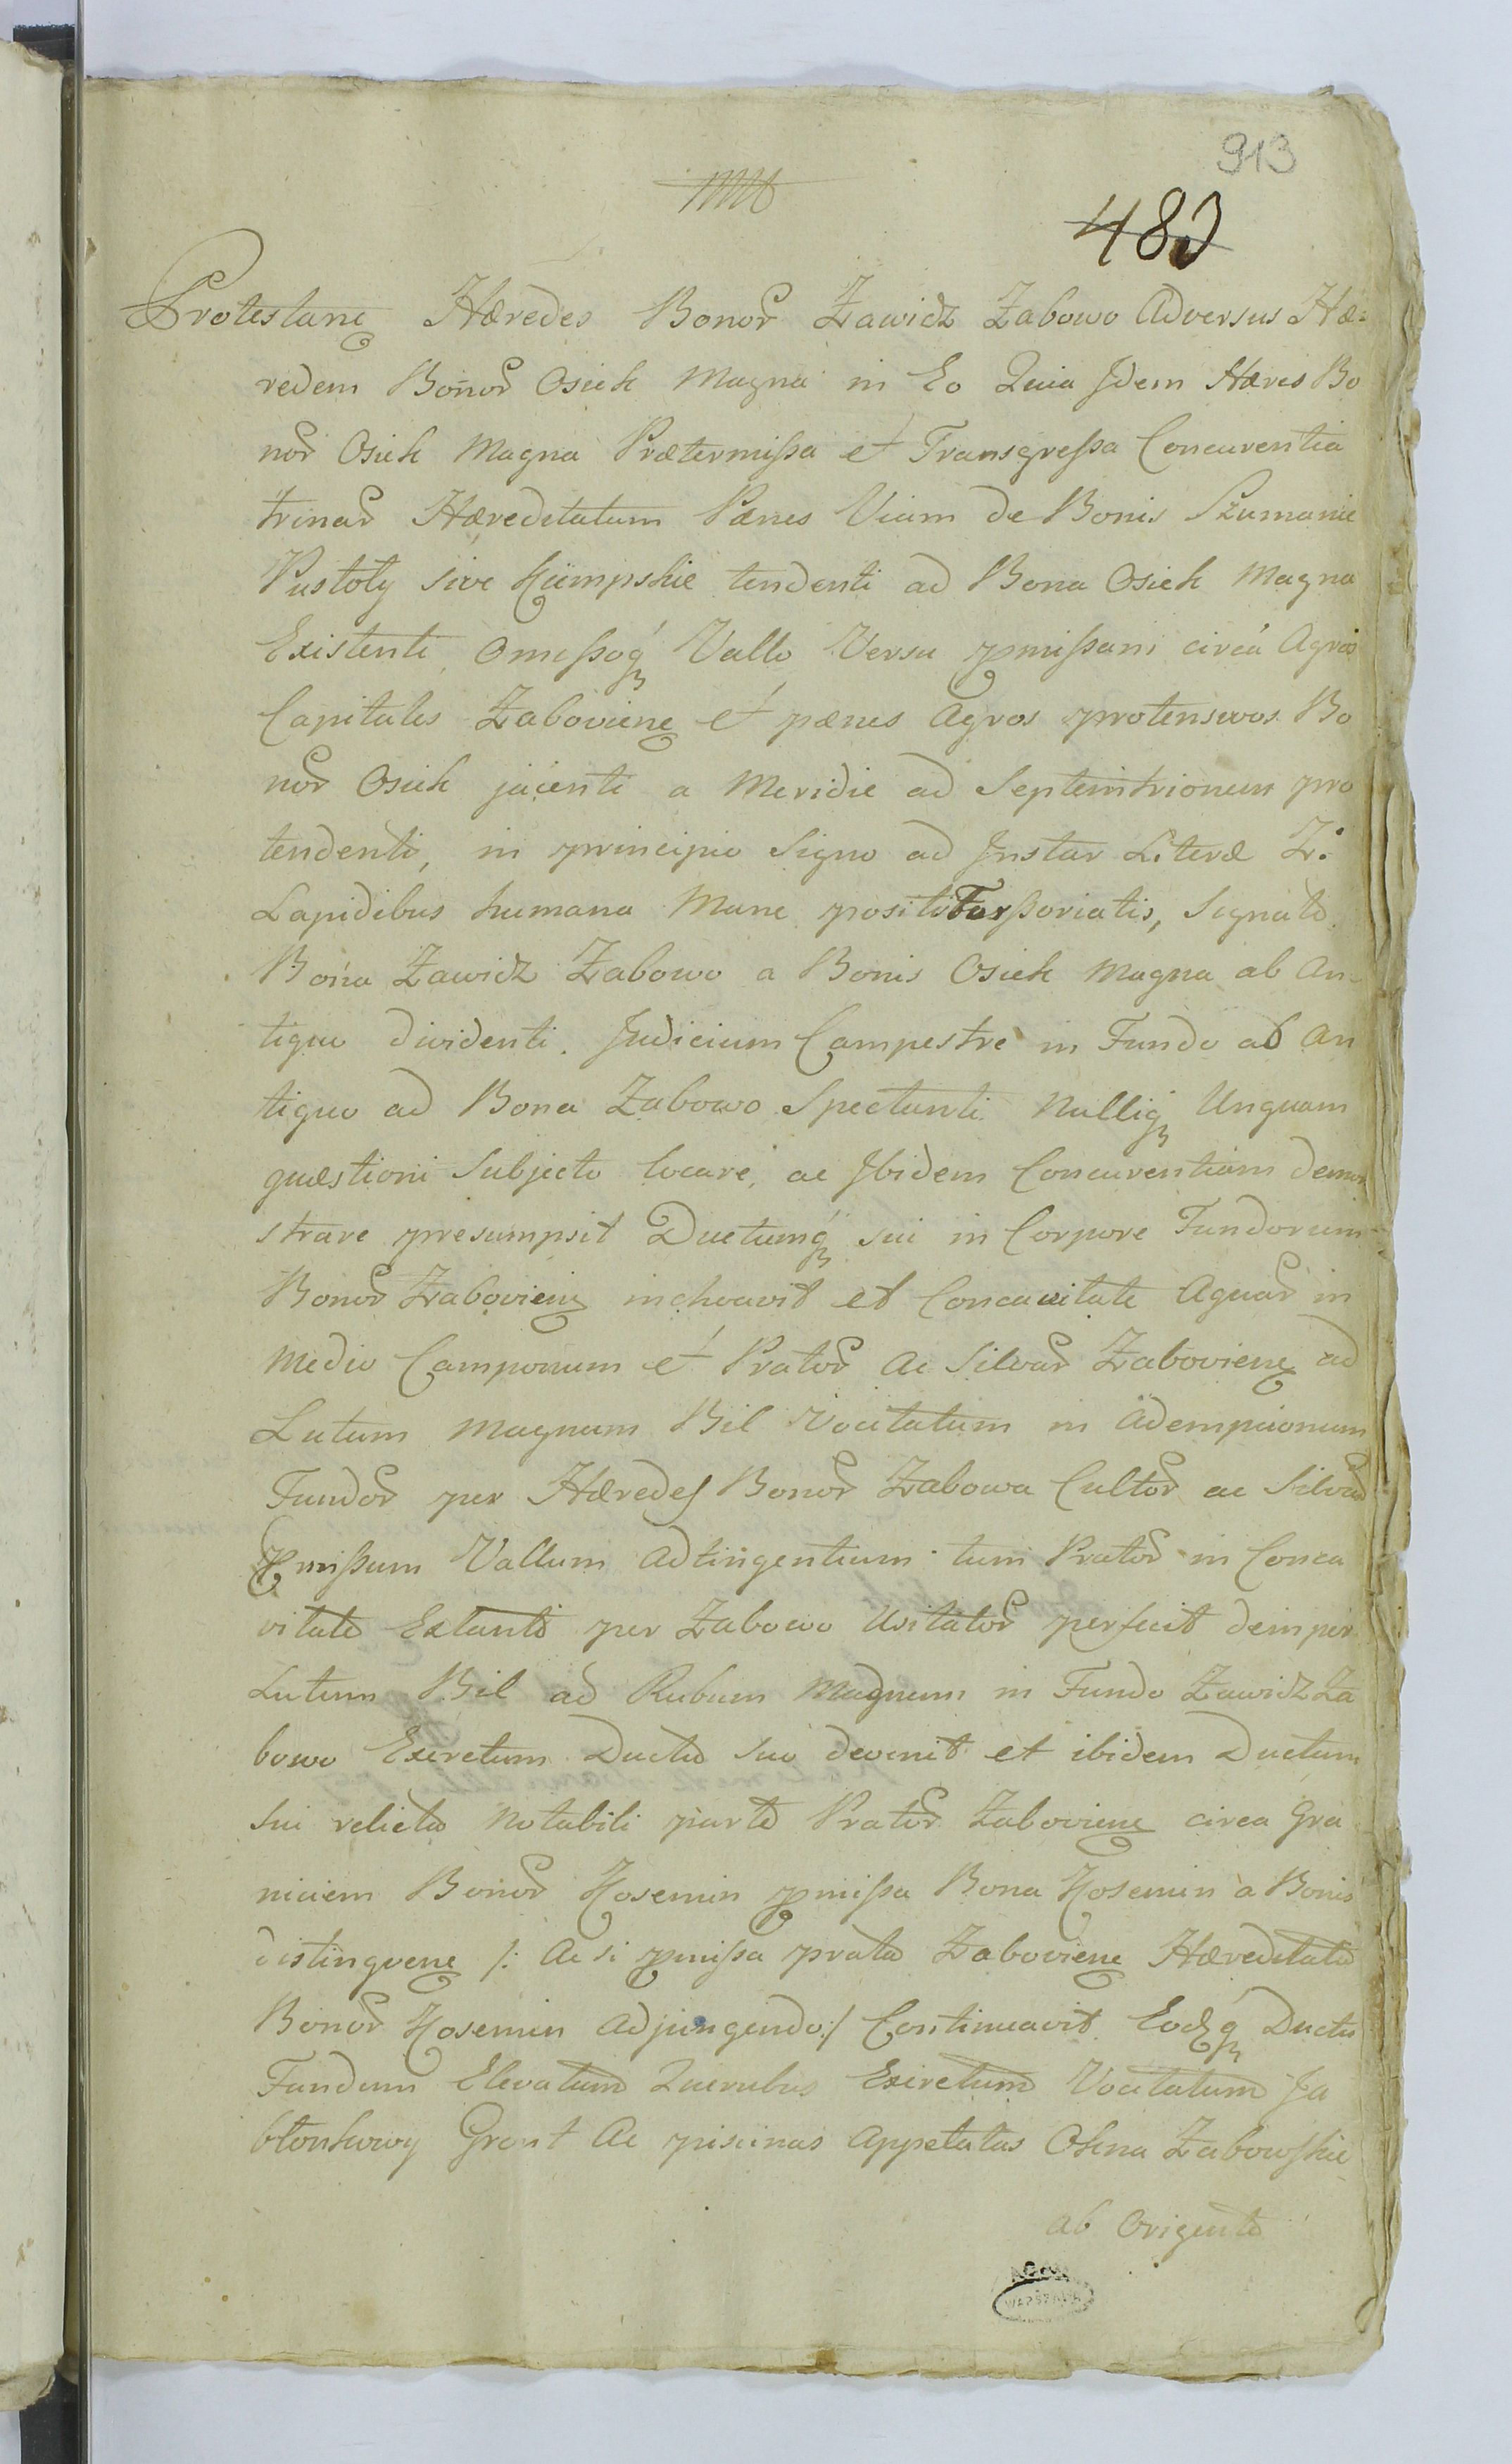 913
483
Protestanꝫ Hæredes Bonoꝝ Zawidz Zabowo Adversus Hæ=
redem Bonoꝝ Osiek Magna in Eo Quia Idem Hæres Bo
noꝝ Osiek Magna Prætermißa et Transgreßa Concurentia
trinaꝝ Hæreditatum Pænes Viam de Bonis Szumanie
Pustoły sive tendenti ad Bona Osiek Magna
Existenti, Omißoqꝫ Vallo Versu pmißam circa Agros
Capitales Zabovienꝫ et pænes Agros protensivos Bo
noꝝ Osiek jacenti a Meridie ad Septemtrionem pro
tendenti, in principio Signo ad Instar Literæ Z:
Lapidibus humana Mane posit Signato
Bona Zawidz Zabowo a Bonis Osiek Magna ab An-
tiquo dividenti. Judicium Campestre in Fundo ab An
tiquo ad Bona Zabowo Spectanti Nulliqꝫ Unquam
quæstioni Subjecto locare, ac Ibidem Concurentiam demon
strare presumpsit Ductumqꝫ sui in Corpore Fundorum
Bonoꝝ Zabovienꝫ inchoavit et Concavitate Aquaꝝ in
Medio Camporum et Pratoꝝ Ac Silvaꝝ Zabovienꝫ ad
Lutum Magnum Bil Vocitatum in Adempcionem
Fundoꝝ per Hæredes Bonoꝝ Zabowa Cultoꝝ ac Silvaꝝ
pmißum Vallum Adtingentium tum Pratoꝝ in Conca
vitate Extanti per Zabowo Usitatoꝝ perfecit dein per
Lutum Bil ad Rubum Magnum in Fundo Zawidz Za
bowo Excretum Ductu suo devenit et ibidem Ductum
sui relicta Notabili parte Pratoꝝ Zabovienꝫ circa Gra
niciem Bonoꝝ Kosemin pmißa Bona Kosemin a Bonis
distingvenꝫ /: Ac si pmißa prata Zabovienꝫ Hæreditati
Bonoꝝ Kosemin Adjungendo :/ Continuavit Eodqꝫ Ductu
Fundum Elevatum Quercubus Excretum Vocitatum Ja
błonkowy Gront Ac piscinas Appelatas Okna Zabowskie
ab Origente
WARSZAWA